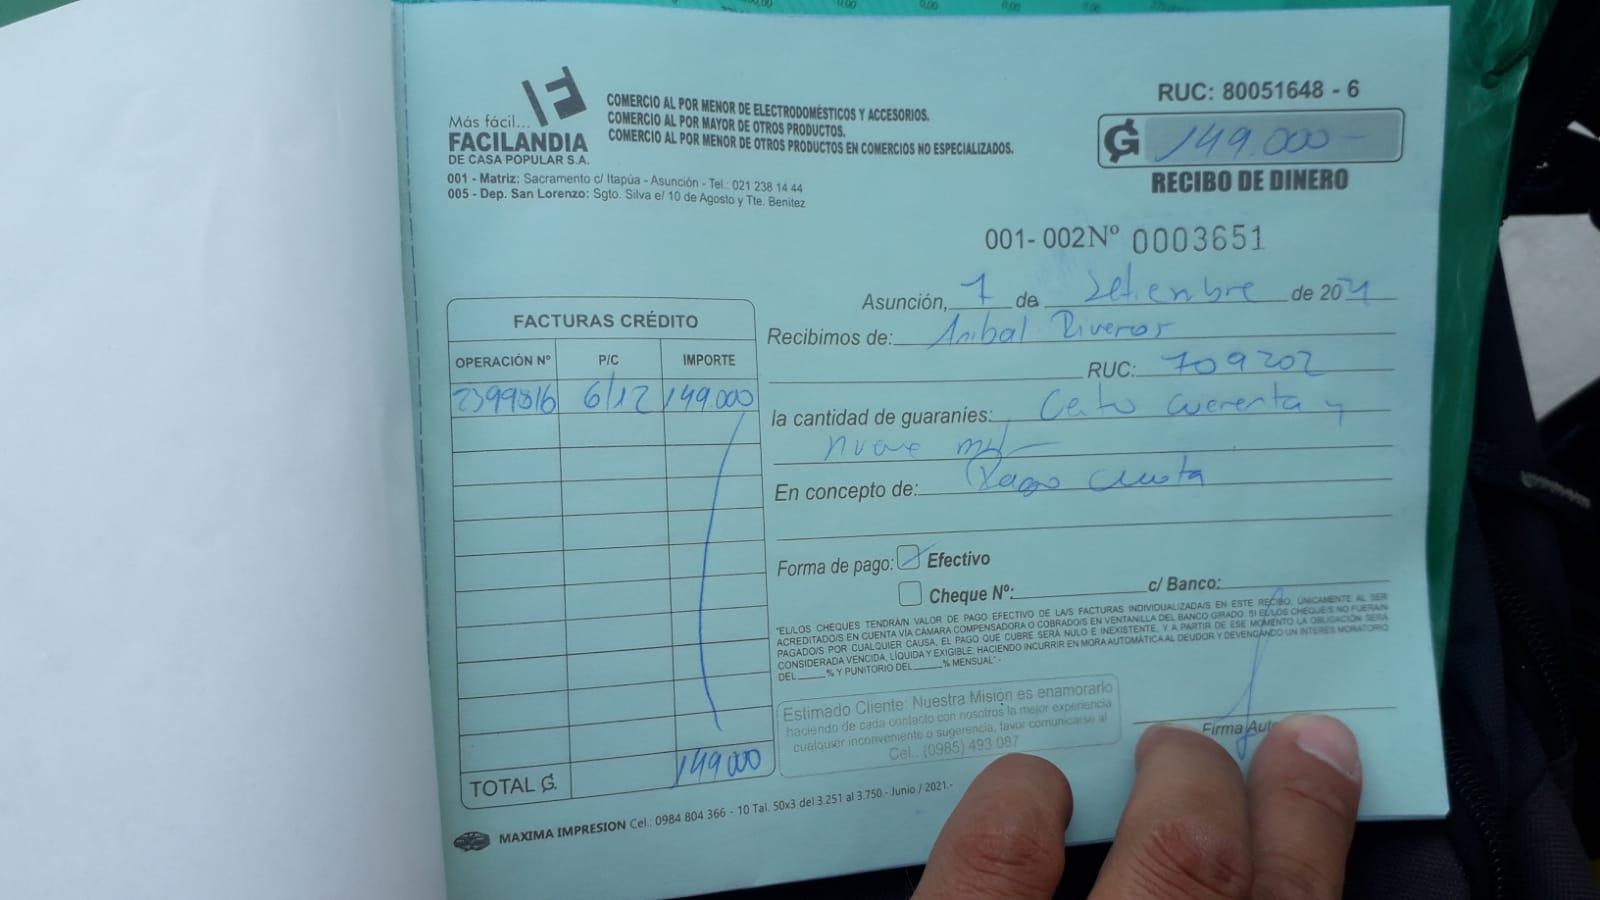 Más fácil...
FACILANDIA
DE CASA POPULAR S.A.
COMERCIO AL POR MENOR DE ELECTRODOMÉSTICOS Y ACCESORIOS.
COMERCIO AL POR MAYOR DE OTROS PRODUCTOS.
COMERCIO AL POR MENOR DE OTROS PRODUCTOS EN COMERCIOS NO ESPECIALIZADOS.
001 - Matriz: Sacramento c/ Itapúa - Asunción - Tel.: 021 238 14 44
005 - Dep. San Lorenzo: Sgto. Silva e/ 10 de Agosto y Tte. Benitez
RUC: 80051648 - 6
₲ 149.000-
RECIBO DE DINERO
001- 002 Nº 0003651
Asunción, 7 de Setiembre de 2021
Recibimos de: Anibal Riveros
RUC: 709202
la cantidad de guaraníes: Cento cuerenta y
nueve mil
En concepto de: Pago cuota
Forma de pago: Efectivo
Cheque Nº: c/ Banco:
"EL/LOS CHEQUES TENDRÁ/N VALOR DE PAGO EFECTIVO DE LA/S FACTURAS INDIVIDUALIZADA/S EN ESTE RECIBO, ÚNICAMENTE AL SER
ACREDITADO/S EN CUENTA VÍA CÁMARA COMPENSADORA O COBRADO/S EN VENTANILLA DEL BANCO GIRADO. SI EL/LOS CHEQUE/S NO FUERA/N
PAGADO/S POR CUALQUIER CAUSA, EL PAGO QUE CUBRE SERÁ NULO E INEXISTENTE, Y A PARTIR DE ESE MOMENTO LA OBLIGACIÓN SERÁ
CONSIDERADA VENCIDA, LÍQUIDA Y EXIGIBLE, HACIENDO INCURRIR EN MORA AUTOMÁTICA AL DEUDOR Y DEVENGANDO UN INTERÉS MORATORIO
DEL % Y PUNITORIO DEL % MENSUAL".-
Estimado Cliente: Nuestra Misión es enamorarlo
haciendo de cada contacto con nosotros la mejor experiencia
cualquier inconveniente o sugerencia, favor comunicarse al
Cel.. (0985) 493 087
Firma Aut
FACTURAS CRÉDITO
OPERACIÓN Nº P/C IMPORTE
2399816 6/12 149.000
TOTAL ₲. 149000
MAXIMA IMPRESION Cel.: 0984 804 366 - 10 Tal. 50x3 del 3.251 al 3.750.- Junio / 2021.-